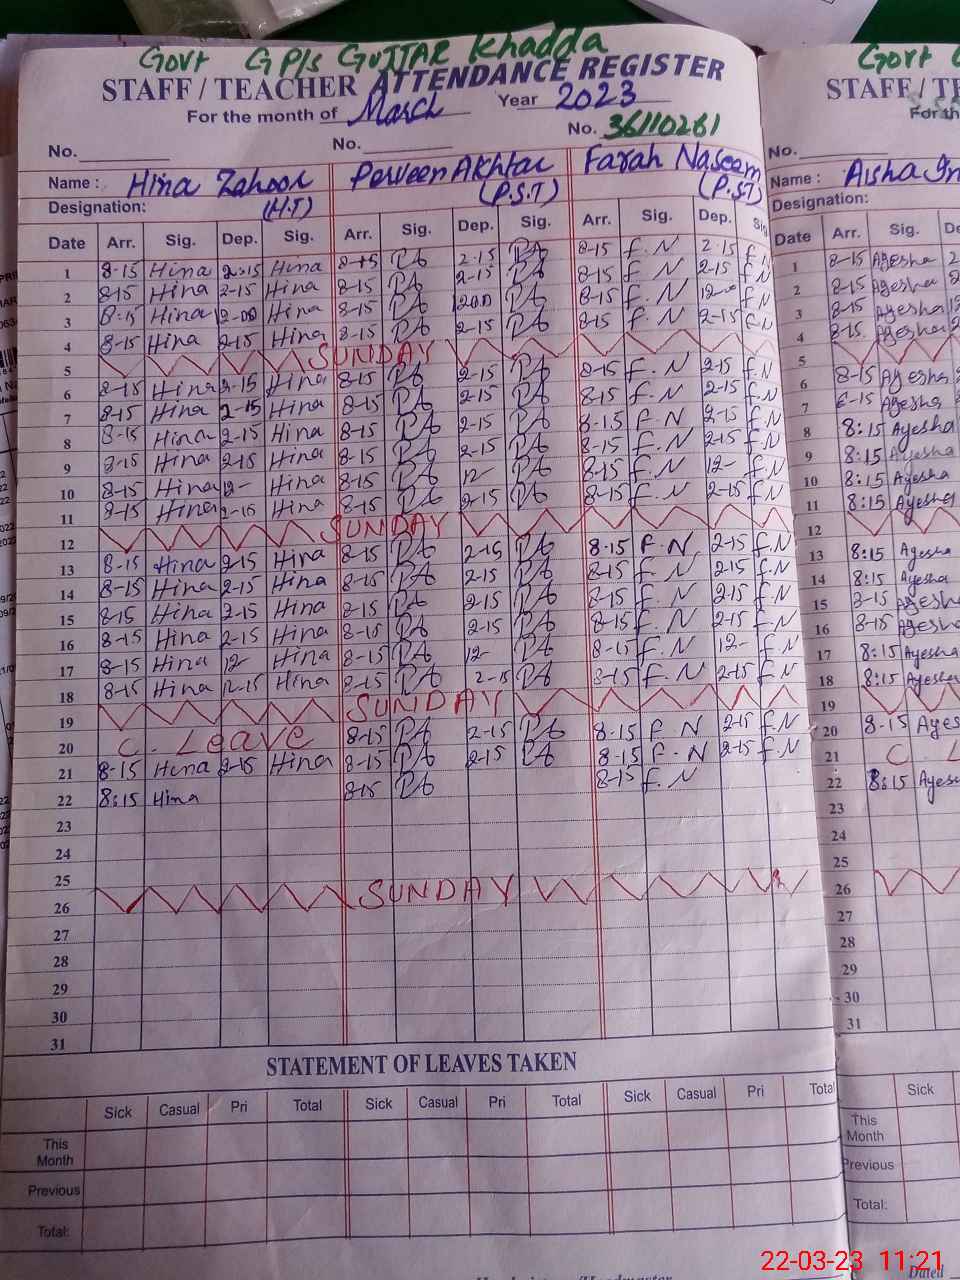 Govt G P/s GUJJAR Khadda
STAFF / TEACHER ATTENDANCE REGISTER
For the month of March Year 2023
No. No. No. 36110261
Name : Hina Zahoor Perveen Akhtar Farah Naseem
Designation: (H.T) (P.S.T) (P.S.T)
Date Arr. Sig. Dep. Sig. Arr. Sig. Dep. Sig. Arr. Sig. Dep. Sig
1 8-15 Hina 2:15 Hina 8-15 PA 2-15 PA 8-15 F.N 2-15 F.N
2 8-15 Hina 2-15 Hina 8-15 PA 2-15 PA 8-15 F.N 2-15 F.N
3 8:15 Hina 12-00 Hina 8-15 PA 1200 PA 8-15 F.N 12-00 F.N
4 8-15 Hina 2-15 Hina 8-15 PA 2-15 PA 8-15 F.N 2-15 F.N
5 SUNDAY
6 8-15 Hina 2-15 Hina 8-15 PA 2-15 PA 8-15 F.N 2-15 F.N
7 8-15 Hina 2-15 Hina 8-15 PA 2-15 PA 8-15 F.N 2-15 F.N
8 8-15 Hina 2-15 Hina 8-15 PA 2-15 PA 8-15 F.N 2-15 F.N
9 8-15 Hina 2-15 Hina 8-15 PA 2-15 PA 8-15 F.N 2-15 F.N
10 8-15 Hina 12- Hina 8-15 PA 12 PA 8-15 F.N 12- F.N
11 8-15 Hina 2-15 Hina 8-15 PA 2-15 PA 8-15 F.N 2-15 F.N
12 SUNDAY
13 8-15 Hina 2-15 Hina 8-15 PA 2-15 PA 8-15 F.N 2-15 F.N
14 8-15 Hina 2-15 Hina 8-15 PA 2-15 PA 8-15 F.N 2-15 F.N
15 8-15 Hina 2-15 Hina 8-15 PA 2-15 PA 8-15 F.N 2-15 F.N
16 8-15 Hina 2-15 Hina 8-15 PA 2-15 PA 8-15 F.N 2-15 F.N
17 8-15 Hina 12- Hina 8-15 PA 12- PA 8-15 F.N 12- F.N
18 8-15 Hina 12-15 Hina 8-15 PA 2-15 PA 8-15 F.N 2-15 F.N
19 SUNDAY
20 C. Leave 8-15 PA 2-15 PA 8-15 F.N 2-15 F.N
21 8-15 Hina 2-15 Hina 8-15 PA 2-15 PA 8-15 F.N 2-15 F.N
22 8:15 Hina 8-15 PA 8-15 F.N
23
24
25
26 SUNDAY
27
28
29
30
31
STATEMENT OF LEAVES TAKEN
Sick Casual Pri Total Sick Casual Pri Total Sick Casual Pri Total
This Month
Previous
Total:
Govt
STAFF / TE
For th
No.
Name : Aisha
Designation:
Date Arr. Sig. De
1 8-15 Ayesha
2 8-15 Ayesha
3 8-15 Ayesha
4 8-15 Ayesha
5
6 8-15 Ayesha
7 8-15 Ayesha
8 8:15 Ayesha
9 8:15 Ayesha
10 8:15 Ayesha
11 8:15 Ayesha
12
13 8:15 Ayesha
14 8:15 Ayesha
15 8-15 Ayesha
16 8-15 Ayesha
17 8:15 Ayesha
18 8:15 Ayesha
19
20 8-15 Ayes
21 C. L
22 8:15 Ayes
23
24
25
26
27
28
29
30
31
Sick
This Month
Previous
Total:
Dated
22-03-23 11:21